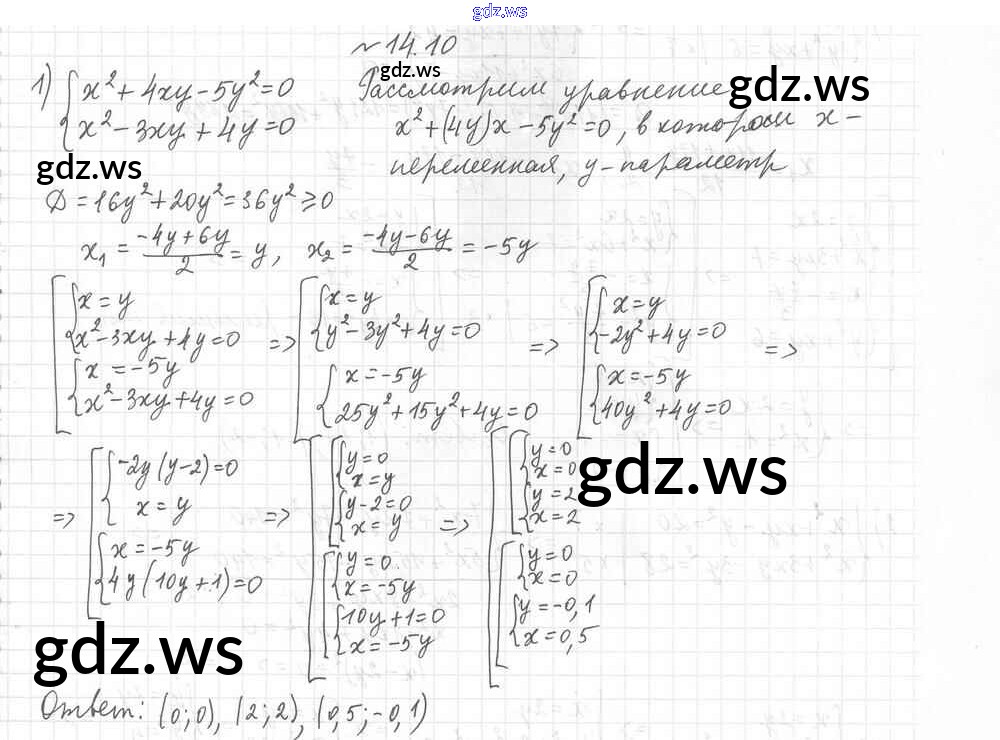 gdz.ws
№ 14.10
1) { x² + 4xy - 5y² = 0
{ x² - 3xy + 4y = 0
Рассмотрим уравнение
x² + (4y)x - 5y² = 0, в котором x -
переменная, y - параметр
gdz.ws
gdz.ws
gdz.ws
D = 16y² + 20y² = 36y² ≥ 0
x₁ = (-4y + 6y)/2 = y, x₂ = (-4y - 6y)/2 = -5y
[ { x = y
{ x² - 3xy + 4y = 0
{ x = -5y
{ x² - 3xy + 4y = 0
=> [ { x = y
{ y² - 3y² + 4y = 0
{ x = -5y
{ 25y² + 15y² + 4y = 0
=> [ { x = y
{ -2y² + 4y = 0
{ x = -5y
{ 40y² + 4y = 0
=>
=> [ { -2y(y - 2) = 0
{ x = y
{ x = -5y
{ 4y(10y + 1) = 0
=> [ [ { y = 0
{ x = y
{ y - 2 = 0
{ x = y
[ { y = 0
{ x = -5y
{ 10y + 1 = 0
{ x = -5y
=> [ [ { y = 0
{ x = 0
{ y = 2
{ x = 2
[ { y = 0
{ x = 0
{ y = -0,1
{ x = 0,5
gdz.ws
gdz.ws
Ответ: (0; 0), (2; 2), (0,5; -0,1)